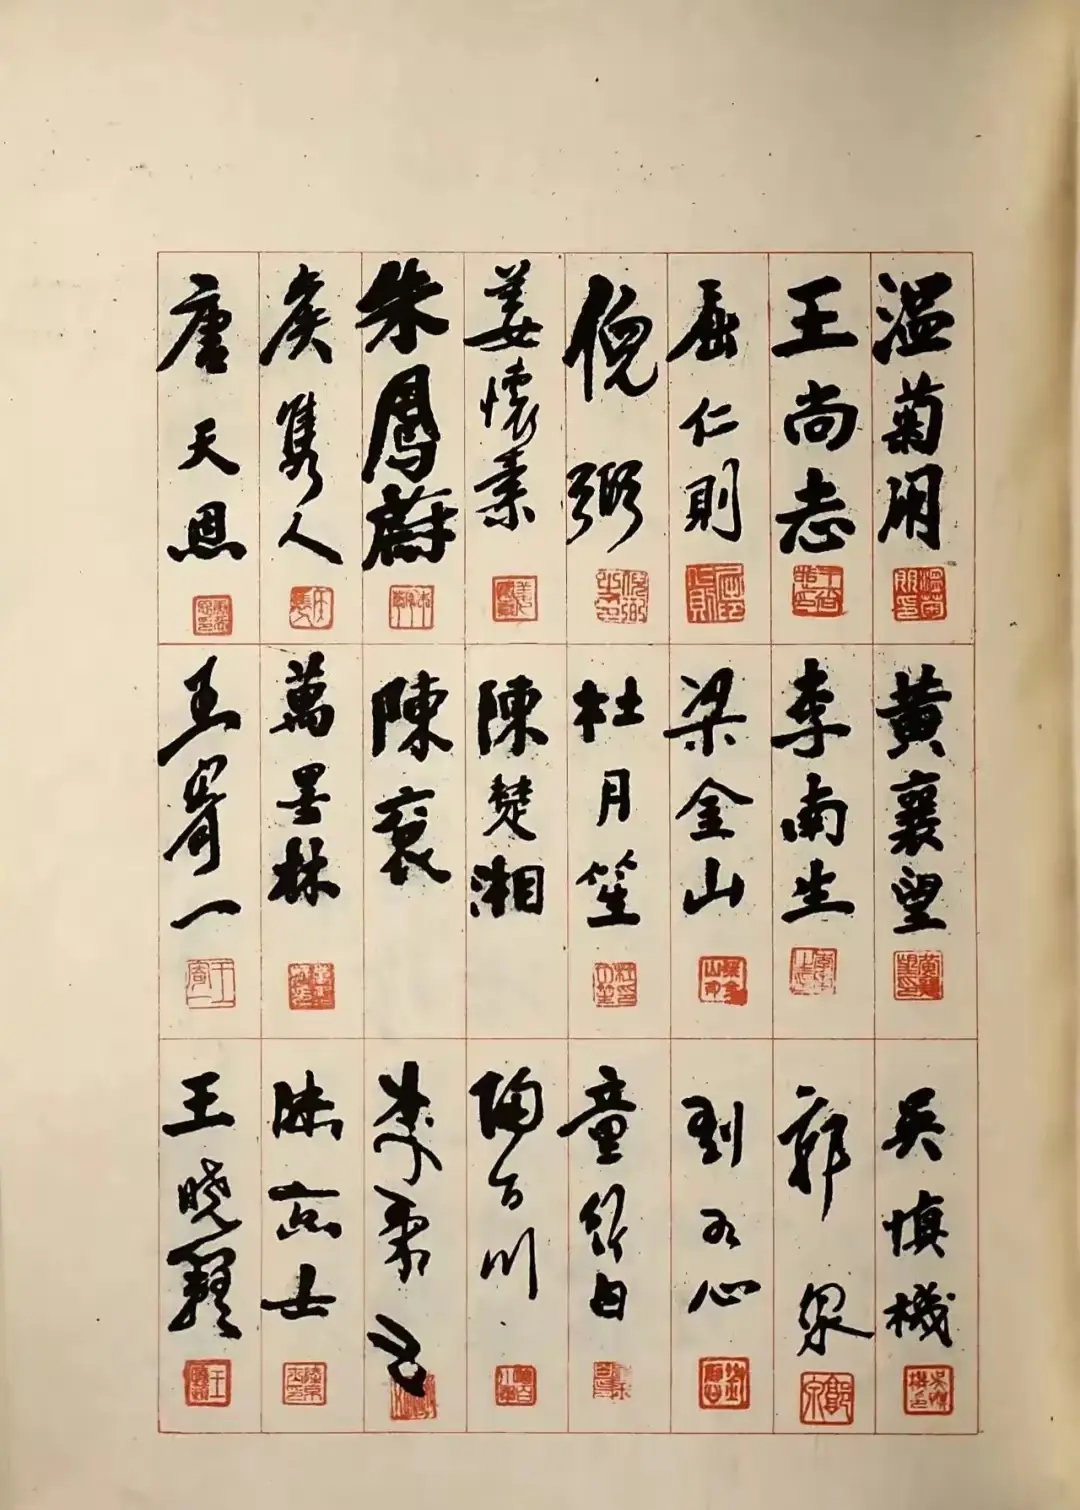 溫菊朋
王尚志
屈仁則
倪弼
姜懷素
朱鳳蔚
侯雋人
唐天恩
黃襄望
李南生
梁金山
杜月笙
陳楚湘
陳袞
萬墨林
王寄一
吳慎機
郭泉
劉不心
童行白
陶百川
陸京士
王曉籟